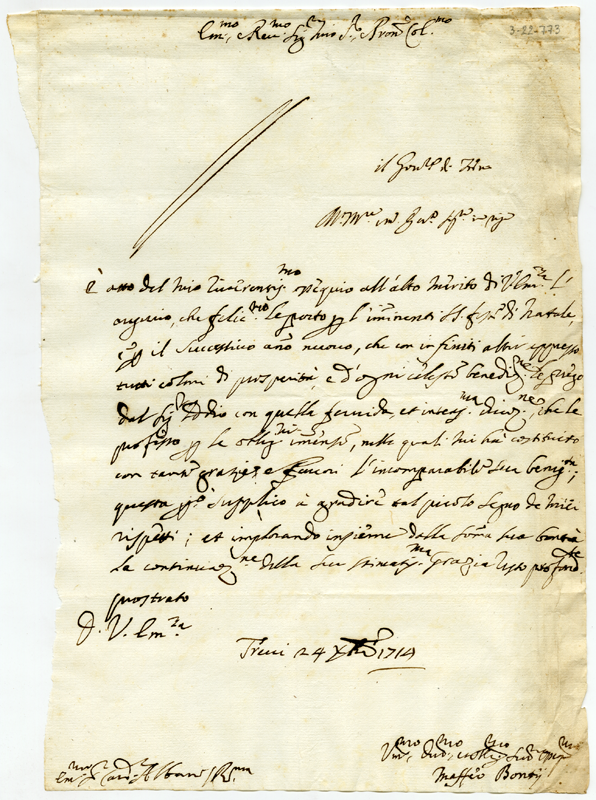 Em.mo e Rev.mo Sig.r mio S.re e Pron Col.mo
3-22-773
il Gov.re di
È atto del mio riverentis.mo ossequio all'alto merito di V. Em.za l'
augurio, che felic.mo le porto p l'iminenti SS. feste di Natale,
e p il successivo año nuovo, che con infiniti altri appresso
tutti colmi di prosperità, e d'ogni celeste benediz.ne le prego
dal Sig.r Iddio con quella fervida, et intens.ma divoz.ne, che le
professo p le oblig.ni imense, nelle quali mi ha costituito
con tante grazie, e favori l'incomparabile sua benig.tà;
questa p.ò supplico à gradire tal piccolo segno de miei
rispetti; et implorando insieme dalla som̃a sua bontà
la continuaz.ne della sua stimatis.ma grazia resto profond.te
prostrato
D. V. Em.za
Trevi 24 Xbre 1714
Em.mo S. Card. Albani Roma
Um.mo Dev.mo et Obblig.mo Ser.re
Maffeo Bonti